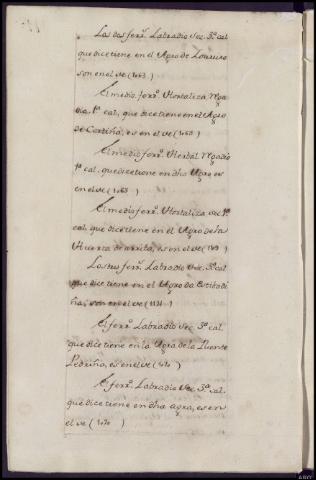 Los dos ferr.s Labradio Sec. 3.a cal.
que dice tiene en el Agro de Loureiro
son en el de (1063)
El medio ferr.o Hortaliza Rega
dia 1.a cal. que dice tiene en el Agro
de Cortiña, es en el de (1068)
El medio ferr.o Herbal Regadio
1.a cal. que dice tiene en dho Agro es
en el de (1068)
El medio ferr.o Hortaliza sec. 1.a
cal. que dice tiene en el Agro de la
Huerta de arriba, es en el de
Los tres ferr.s Labradio Sec. 3.a cal.
que dice tiene en el Agro da
son en el de
El ferr.o Labradio Sec. 3.a cal.
que dice tiene en la Agra de la Puente
Pedriña, es en el de (1070)
El ferr.o Labradio Sec. 3.a cal.
que dice tiene en dha agra, es en
el de (1070)